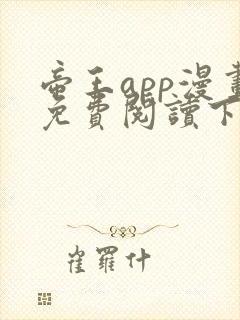 帝王app漫畫
免費閱讀下
崔羅什